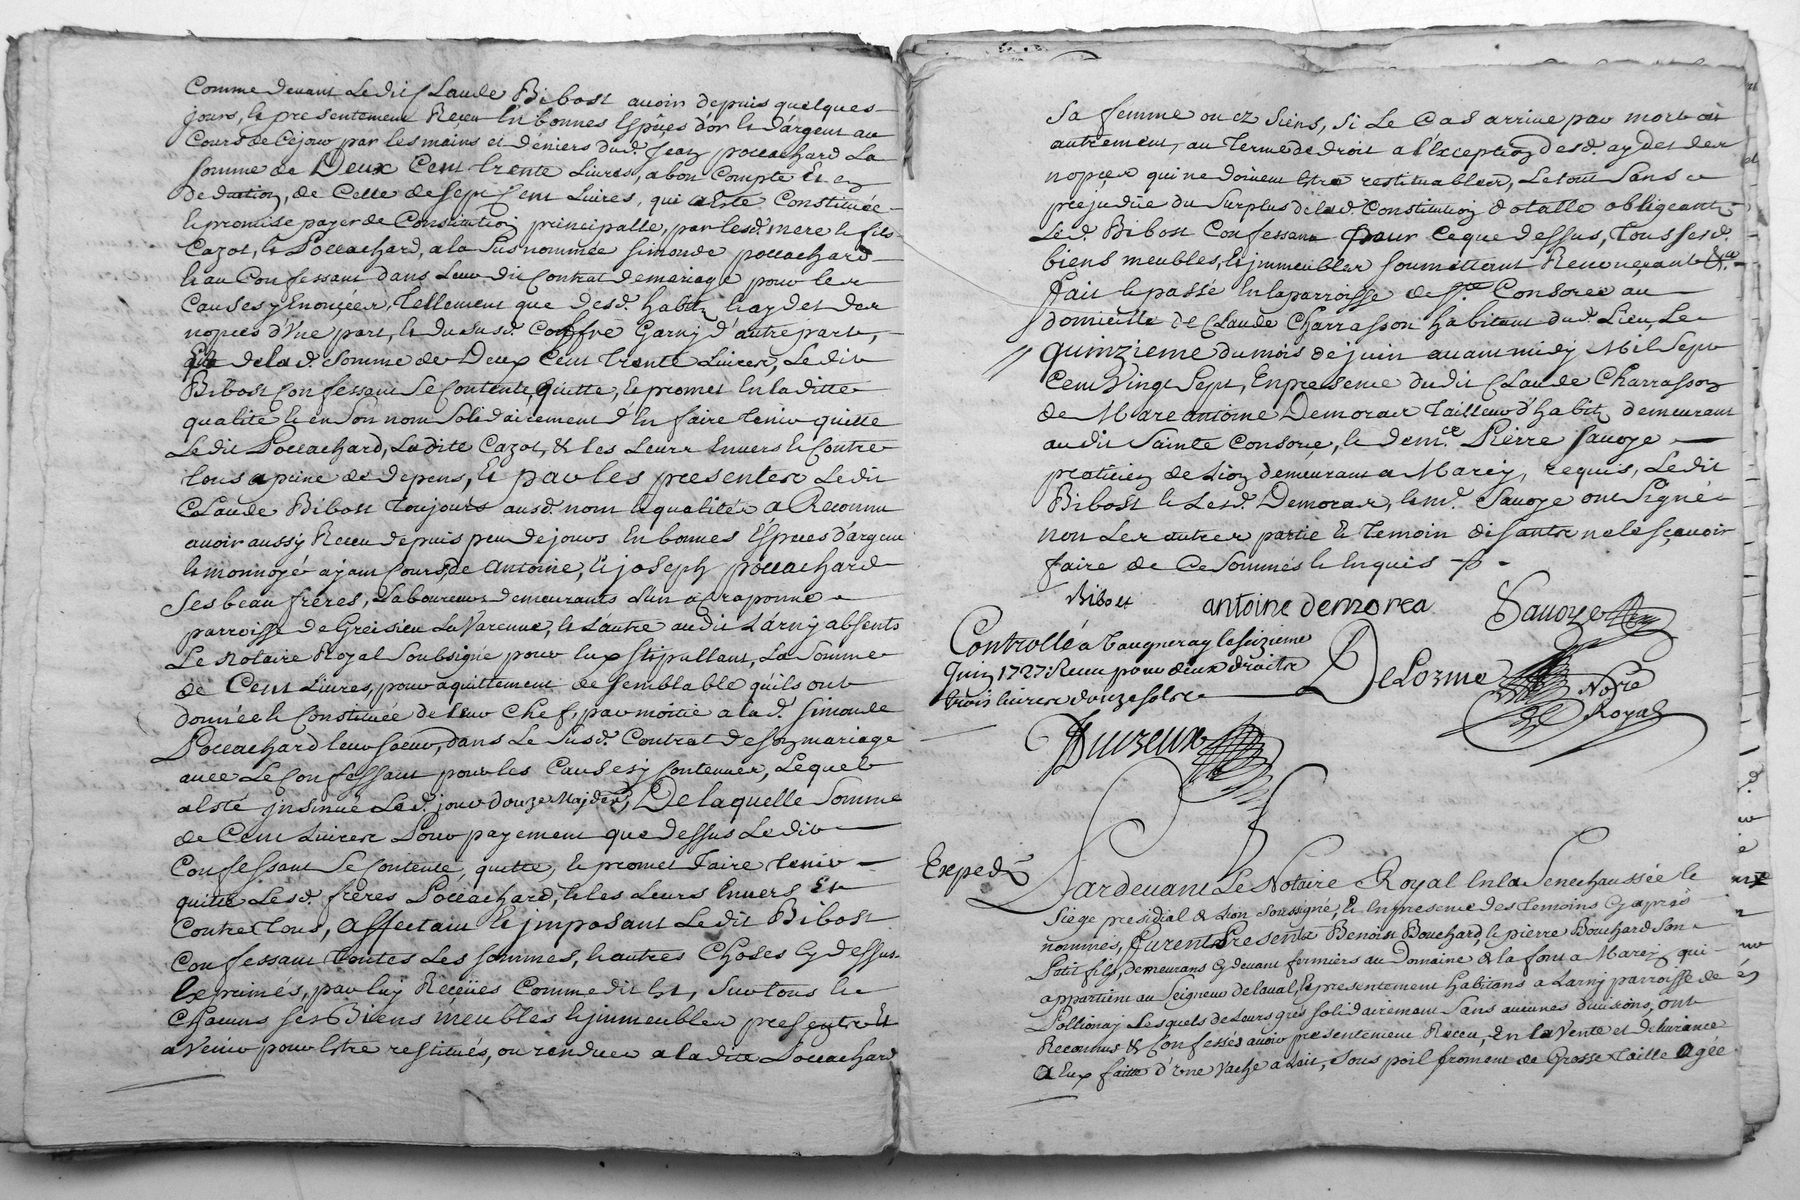 Comme devant Ledit Claude Bibost avoir depuis quelques
jours, & presentement Receu En bonnes Espèces d'or & d'argent au
Cours de Cejour par les mains et deniers dud. Jean poccachard La
somme de Deux Cent trente Livres, a bon Compte Et en
deduction, de Celle de sept Cent Livres, qui a Esté Constituée
& promise payer de Constitution principalle, par lesd. mere & fils
Cazot, & Poccachard, a la susnommée simonde poccachard
& au Confessant dans Leur dit Contrat de mariage pour les
Causes y Enoncées, Tellement que desd. habits & aydes des
nopces d'Une part, & du susd. Coffre Garny d'autre part,
Et de lad. somme de Deux Cent trente Livres, Ledit
Bibost Confessant se Contente, quitte, & promet En laditte
qualité & en son nom solidairement d'En faire tenir quitte
Ledit Poccachard, Ladite Cazot, & les Leurs Envers & Contre
tous a peine de depens, Et par les presentes Ledit
Claude Bibost Toujours ausd. nom & qualités a Reconnu
avoir aussy Receu depuis peu de jours En bonnes Espèces d'argent
& monnoyé ayant Cours, de antoine, & joseph poccachard
ses beau frères, Laboureurs demeurants L'un a Craponne
parroisse de Greisieu La Varenne, & L'autre audit Larny absents
Le Notaire Royal soubsigné pour Eux stipullant, La somme
de Cent Livres, pour aquittement de semblable qu'ils ont
donnée & Constituée de leur Chef, par moitié a lad. simonde
Poccachard leur soeur, dans Le susd. Contrat de son mariage
avec Le Confessant pour les Causes y Contenues, Lequel
a Esté jnsinué Led. jour douze May der., De laquelle somme
de Cent Livres Pour payement que dessus Ledit
Confessant se Contente, quitte, & promet faire tenir
quitte Lesd. frères Poccachard, & les Leurs Envers Et
Contre Tous, affectant & jmposant Ledit Bibost
Confessant toutes Les sommes, & autres Choses Cy dessus
Exprimés, par luy Reçeües Comme dit Est, sur tous &
Chacuns ses Biens meubles & jmmeubles presents Et
a Venir pour Estre restitués, ou rendues a ladite Poccachard
Sa femme ou ez siens, si Le Cas arrive par mort ou
autrement, au Terme de droit a l'Exception desd. aydes des
nopces qui ne doivent Estre restituables, Le tout sans
prejudice du surplus de lad. Constitution dotalle obligeant
Led. Bibost Confessant pour Ceque dessus, Tous sesd.
biens meubles, & jmmeubles soumettant Renonçant &ca
fait & passé En la parroisse de Ste Consorce au
domicille de Claude Charrasson habitant dud. Lieu, Le
quinzieme du mois de juin avant midy Mil Sept
Cent Vingt Sept, En presence dudit Claude Charrasson
de Mare antoine Demorar Tailleur d'habits demeurant
audit Sainte Consorce, & de Pierre Savoye
praticien de Lion demeurant a Marcy, requis, Ledit
Bibost & Lesd. Demorar, & Savoye ont signé
non Les autres partie & Temoin disants ne le sçavoir
faire de Ce sommés & Enquis
Bibost antoine demorea Savoye
Controllé a Vaugneray le seizieme
Juin 1727 Receu pour deux droits
trois livres douze sols
DeLorme Nore Royal
Duizeux
Exped.
Pardevant Le Notaire Royal En la Senechaussée &
Siege presidial de Lion soussigné, & En presence des temoins Cy après
nommés, furent Presents Benoist Bouchard, & pierre Bouchard son
Petit fils, demeurans Cy devant fermiers au Domaine de la font a Marcy qui
appartient au Seigneur de laval, & presentement habitans a Larny parroisse de
Pollionay Lesquels de Leurs grés solidairement Sans aucunes divisions, ont
Reconnus & Confessés avoir presentement Receu, En la Vente et delivrance
a Eux faitte d'Une Vache a Lait, sous poil froment de Grosse taille agée